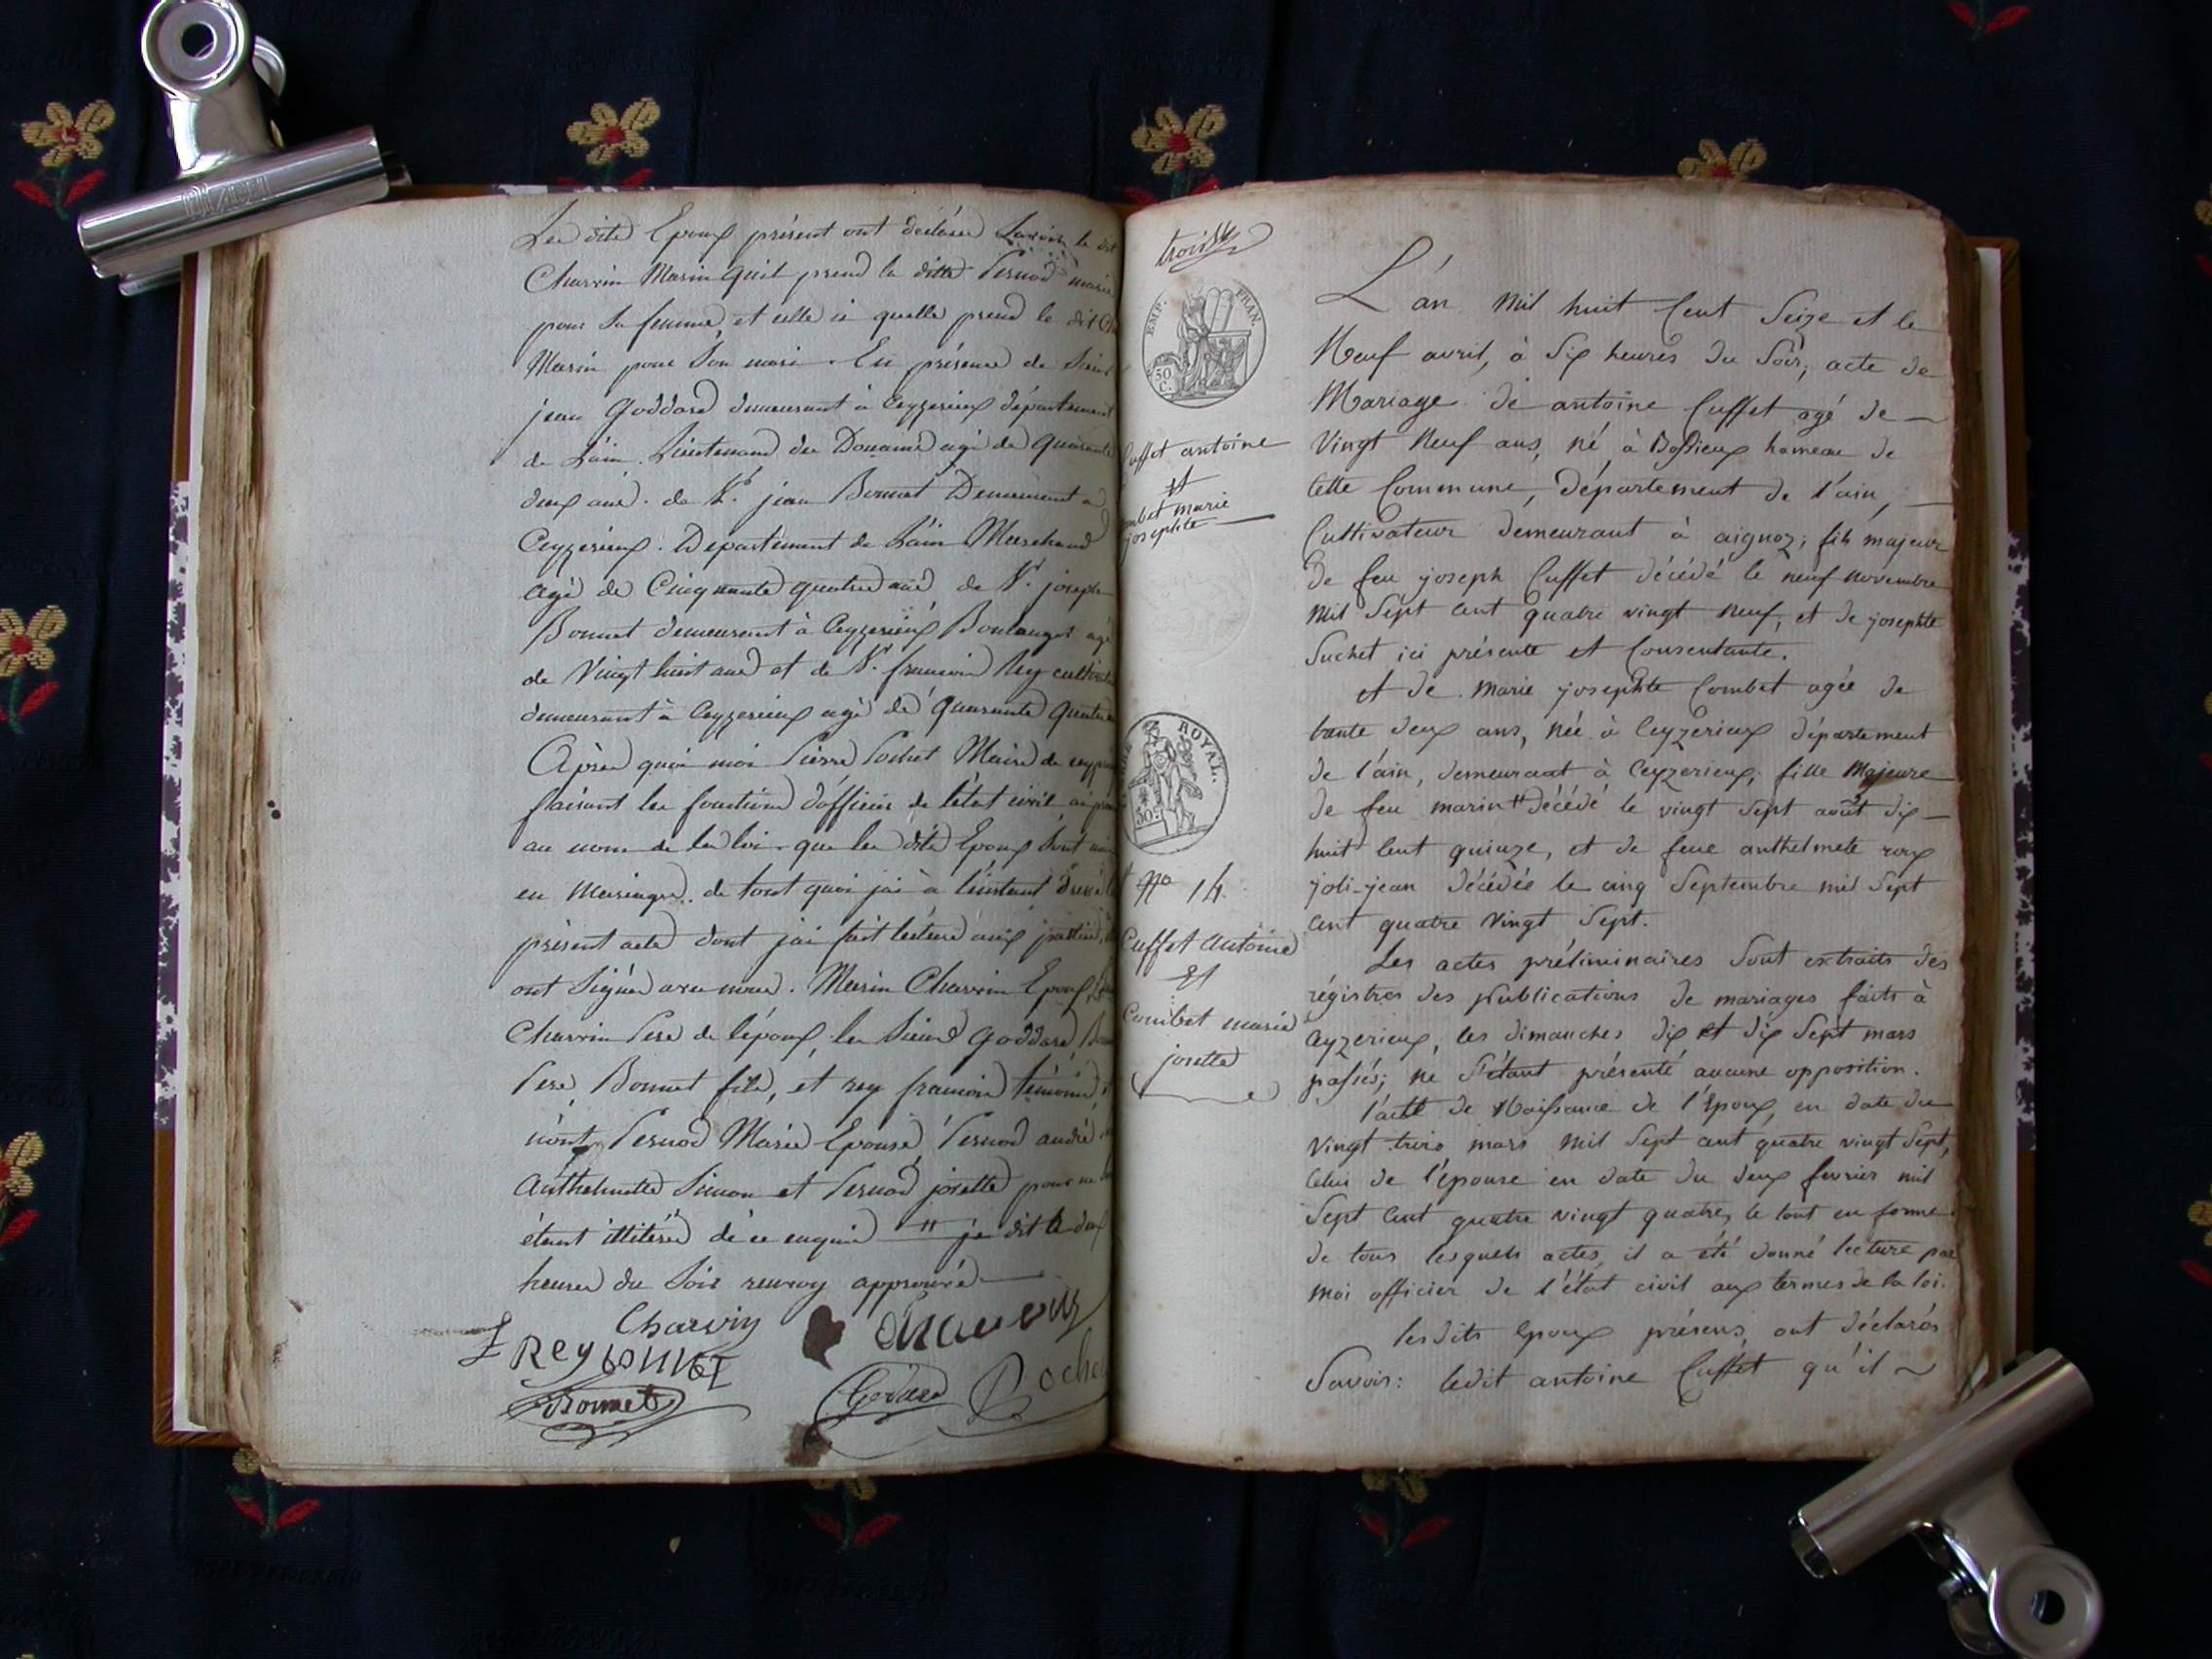 Les dits Epoux présent ont déclarés Savoir le dit
Charvin Marin quil prend la ditte Pernod marie
pour sa femme, et celle ci quelle prend le dit Ch
Marin pour son mari. En présence de Sieur
jean Goddard demeurant à Ceyzerieux département
de Lain. Lieutenant des Douanes agé de quarante
deux ans. de Sr. jean Bonnet Demeurant a
Ceyzerieux. Departement de Lain Marchand
agé de Cinquante quatre ans de Sr. joseph
Bonnet demeurant à Ceyzerieux Boulanger agé
de Vingt huit ans et de Sr. francois Rey cultiv
demeurant à Ceyzerieux agé de quarante quatre
Après quoi moi Pierre Pochet Maire de ceyz
faisant les fonctions d'officier de l'état civil ai
au nom de la loi que les dits Epoux sont unis
en Mariage. de tout quoi jai à linstant dressé
présent acte dont jai fait lecture aux parties,
ont Signés avec nous. Marin Charvin Epoux,
Charvin Pere de lépoux, les Sieurs Goddard,
Pere, Bonnet fils, et rey francois témoins,
non Pernod Marie Epouse, Pernod andré
Anthelmette Simon et Pernod josette pour ne
étant illitérés de ce enquis # je dit le deux
heures du Soir renvoy approuvé
Charvin
f REY bonnet
Bonnet
Godard
Poche
trois
EMP. FRAN.
50 C.
Cuffet antoine
et
mbet marie
josephte
ROYAL.
50
No 14.
Cuffet Antoine
Et
Combet marie
josette
L'an mil huit Cent Seize et le
Neuf avril, à Six heures du Soir, acte de
Mariage de antoine Cuffet agé de
Vingt Neuf ans, né à Bossieux hameau de
Cette Commune, Département de l'ain,
Cultivateur demeurant à aignoz, fils majeur
De feu joseph Cuffet décédé le neuf Novembre
Mil Sept cent quatre vingt neuf, et de josephte
Suchet ici présente et Consentante.
et de Marie josephte Combet agée de
trente deux ans, née à Ceyzerieux département
de l'ain, demeurant à Ceyzerieux, fille Majeure
de feu marin # décédé le vingt Sept août dix
huit Cent quinze, et de feue anthelmete roux
joli-jean décédée le cinq Septembre mil Sept
cent quatre Vingt Sept.
Les actes préliminaires Sont extraits des
régistres des publications de mariages faits à
Ceyzerieux, les dimanches dix et dix Sept mars
passés; ne S'étant présenté aucune opposition.
l'acte de Naissance de l'Epoux, en date du
Vingt trois mars Mil Sept cent quatre vingt Sept,
Celui de l'épouse en date du deux fevrier mil
Sept Cent quatre vingt quatre, le tout en forme
de tous lesquels actes, il a été donné lecture par
moi officier de l'état civil aux termes de la loi.
lesdits Epoux présens, ont déclarés
Savoir: ledit antoine Cuffet qu'il